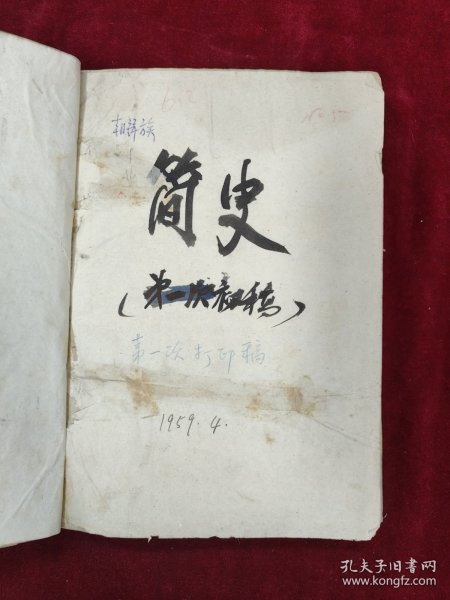 朝鲜族
简史
(第一次初稿)
第一次打印稿
1959.4.
孔夫子旧书网
www.kongfz.com